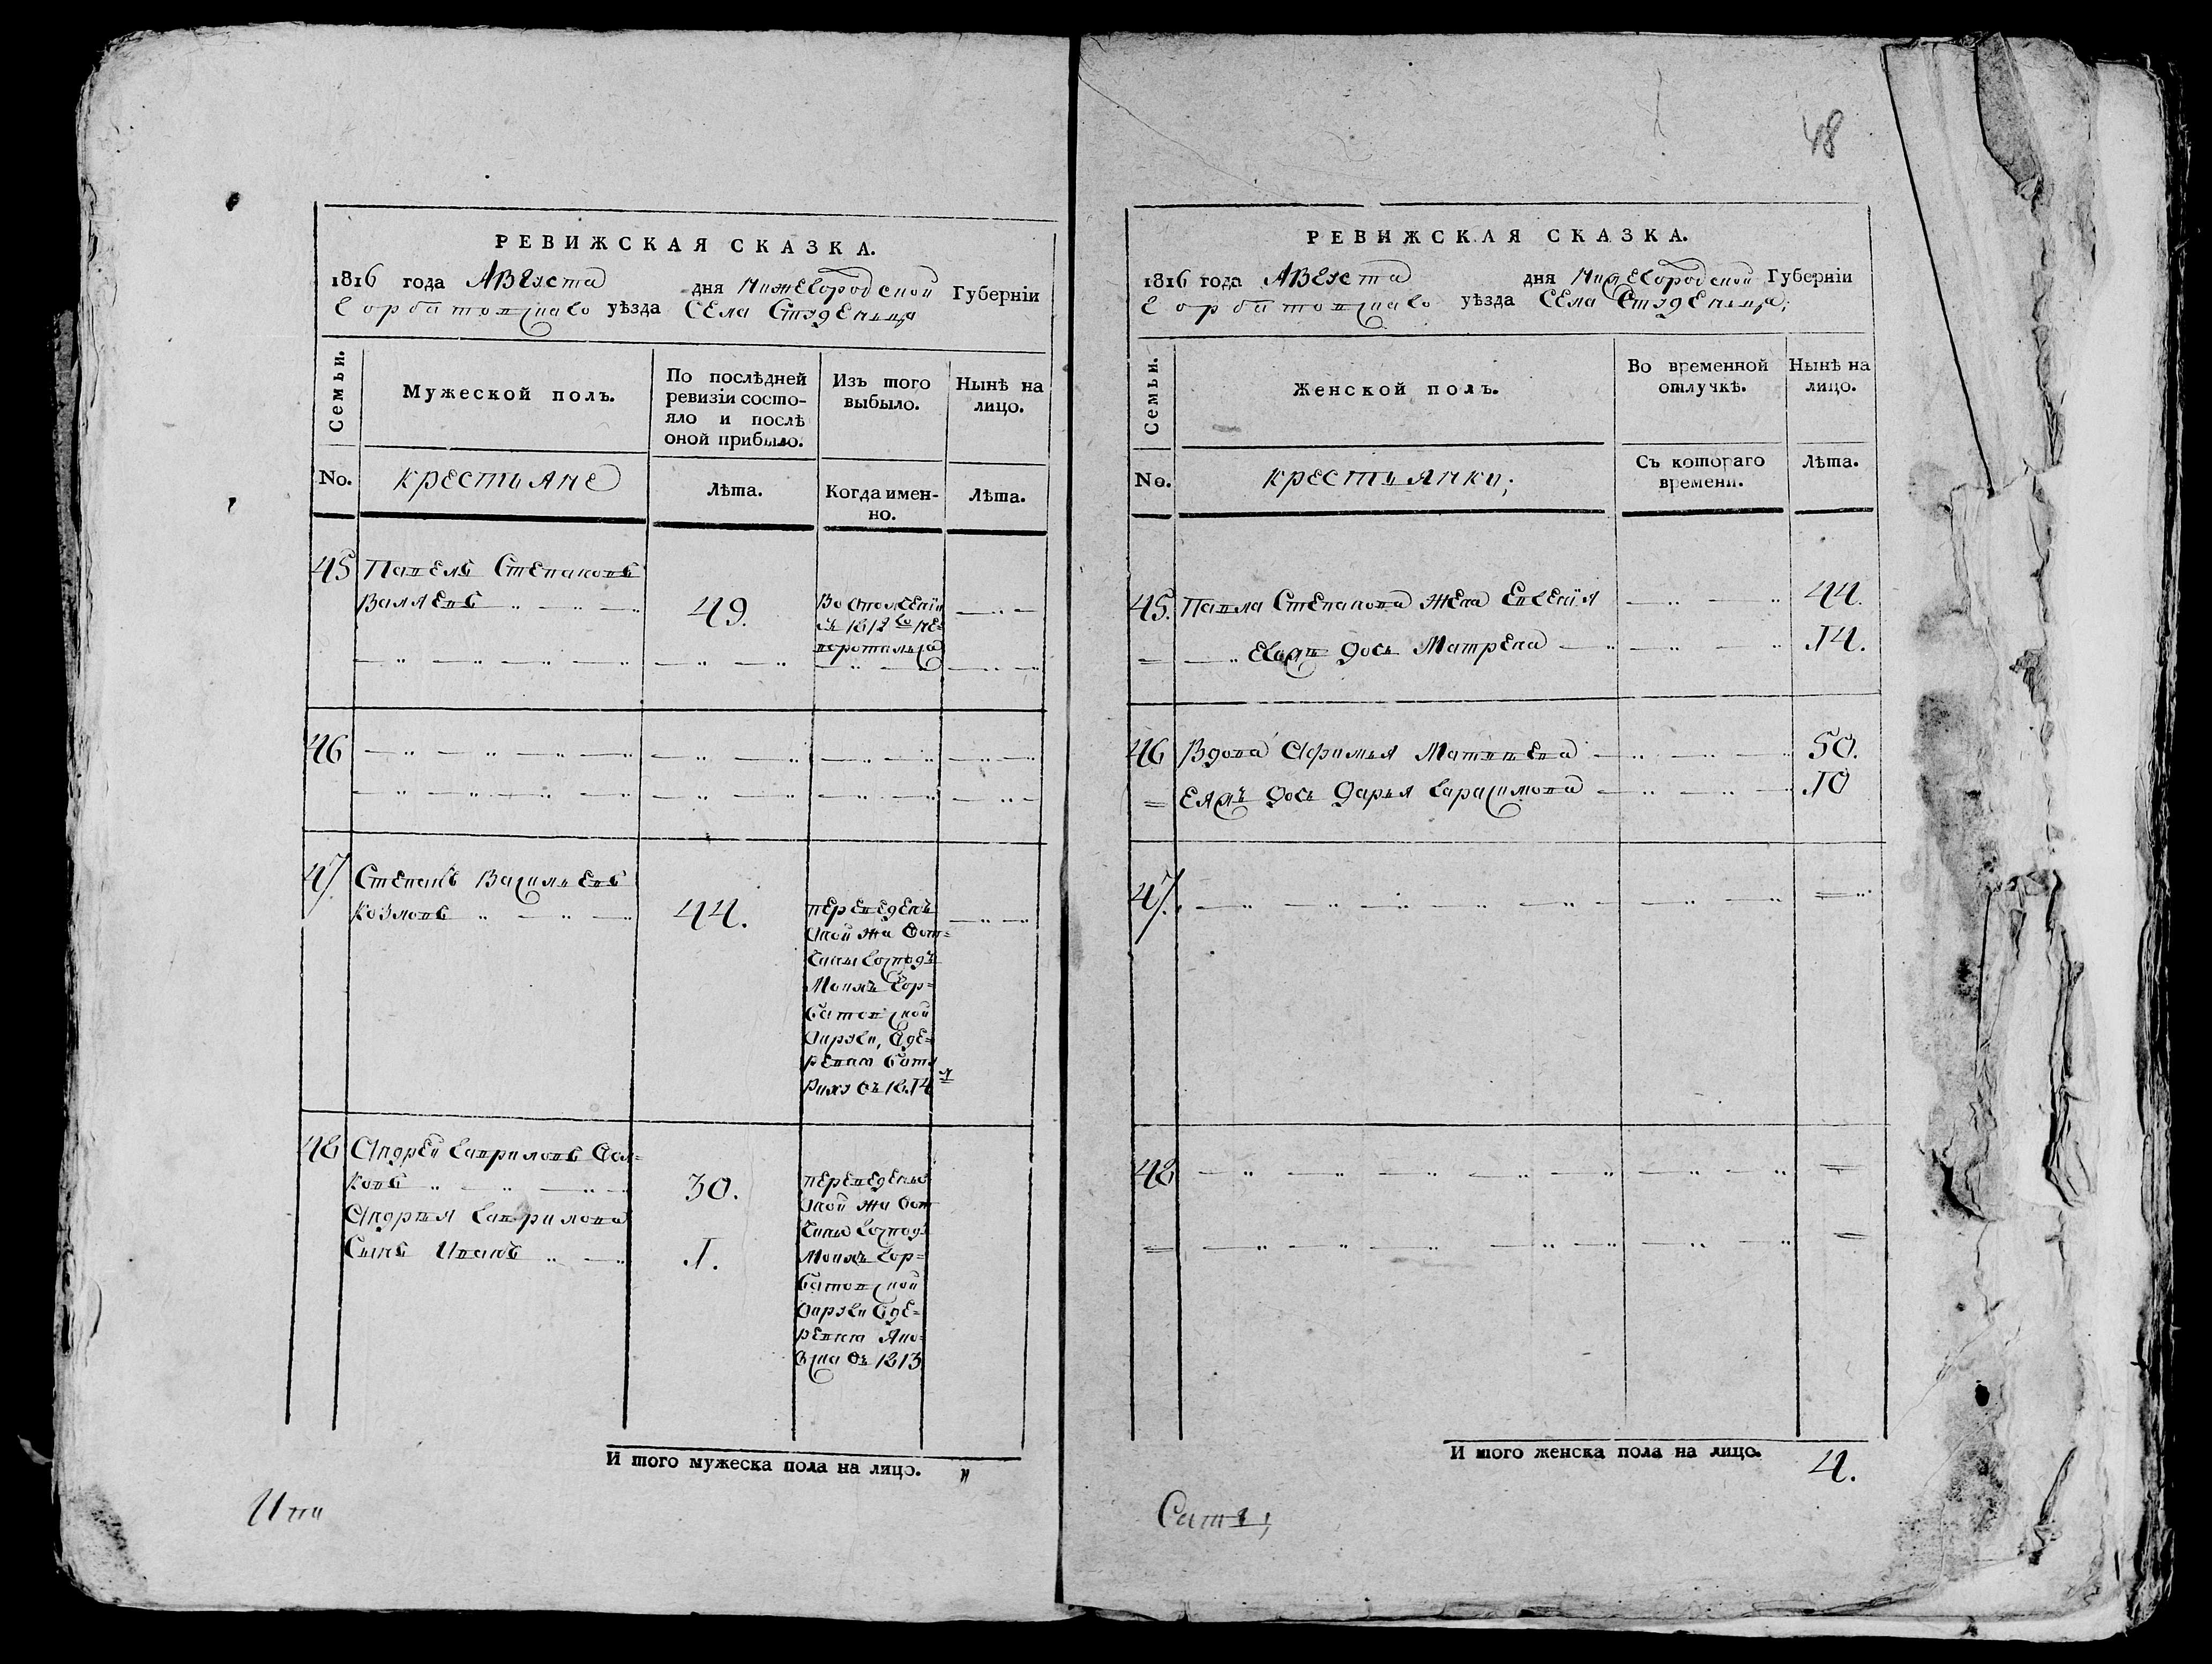 РЕВИЖСКАЯ СКАЗКА.
1816 года Августа дня Нижегородской Губерніи
Горбатовскаго уѣзда Села Студенца
Семьи.
Мужеской полъ.
По послѣдней ревизіи состо-
яло и послѣ
оной прибыло.
Изъ того
выбыло.
Нынѣ на
лицо.
No.
крестьяне
Лѣта.
Когда имен-
но.
Лѣта.
45 Павелъ Степановъ
49.
Во ополченіи
съ 1812го не
воротился
46
47 Степанъ Васильевъ
Козловъ
44.
переведенъ
Оной жа вот-
чины господъ
Моихъ Гор-
батовской
Округи, в де-
ревню
въ 1814м
48 Андрей Гавриловъ Вол-
ковъ
30.
Андрея Гаврилова
Сынъ Иванъ
1.
переведены
Оной жа вот
чины господъ
Моихъ Гор-
батовской
Округи в де-
ревню
въ 1813
И того мужеска пола на лицо. "
48
РЕВИЖСКАЯ СКАЗКА.
1816 года Августа дня Нижегородской Губерніи
Горбатовскаго уѣзда Села Студенца;
Семьи.
Женской полъ.
Во временной
отлучкѣ.
Нынѣ на
лицо.
No.
крестьянки;
Съ котораго
времени.
Лѣта.
45. Павла Степанова жена Евгенія 44.
Евоя дочь Матрена 14.
46 Вдова Афимья Матвѣева 50.
Еяя дочь Дарья Гарасимова 10
47.
48
И того женска пола на лицо. 4.